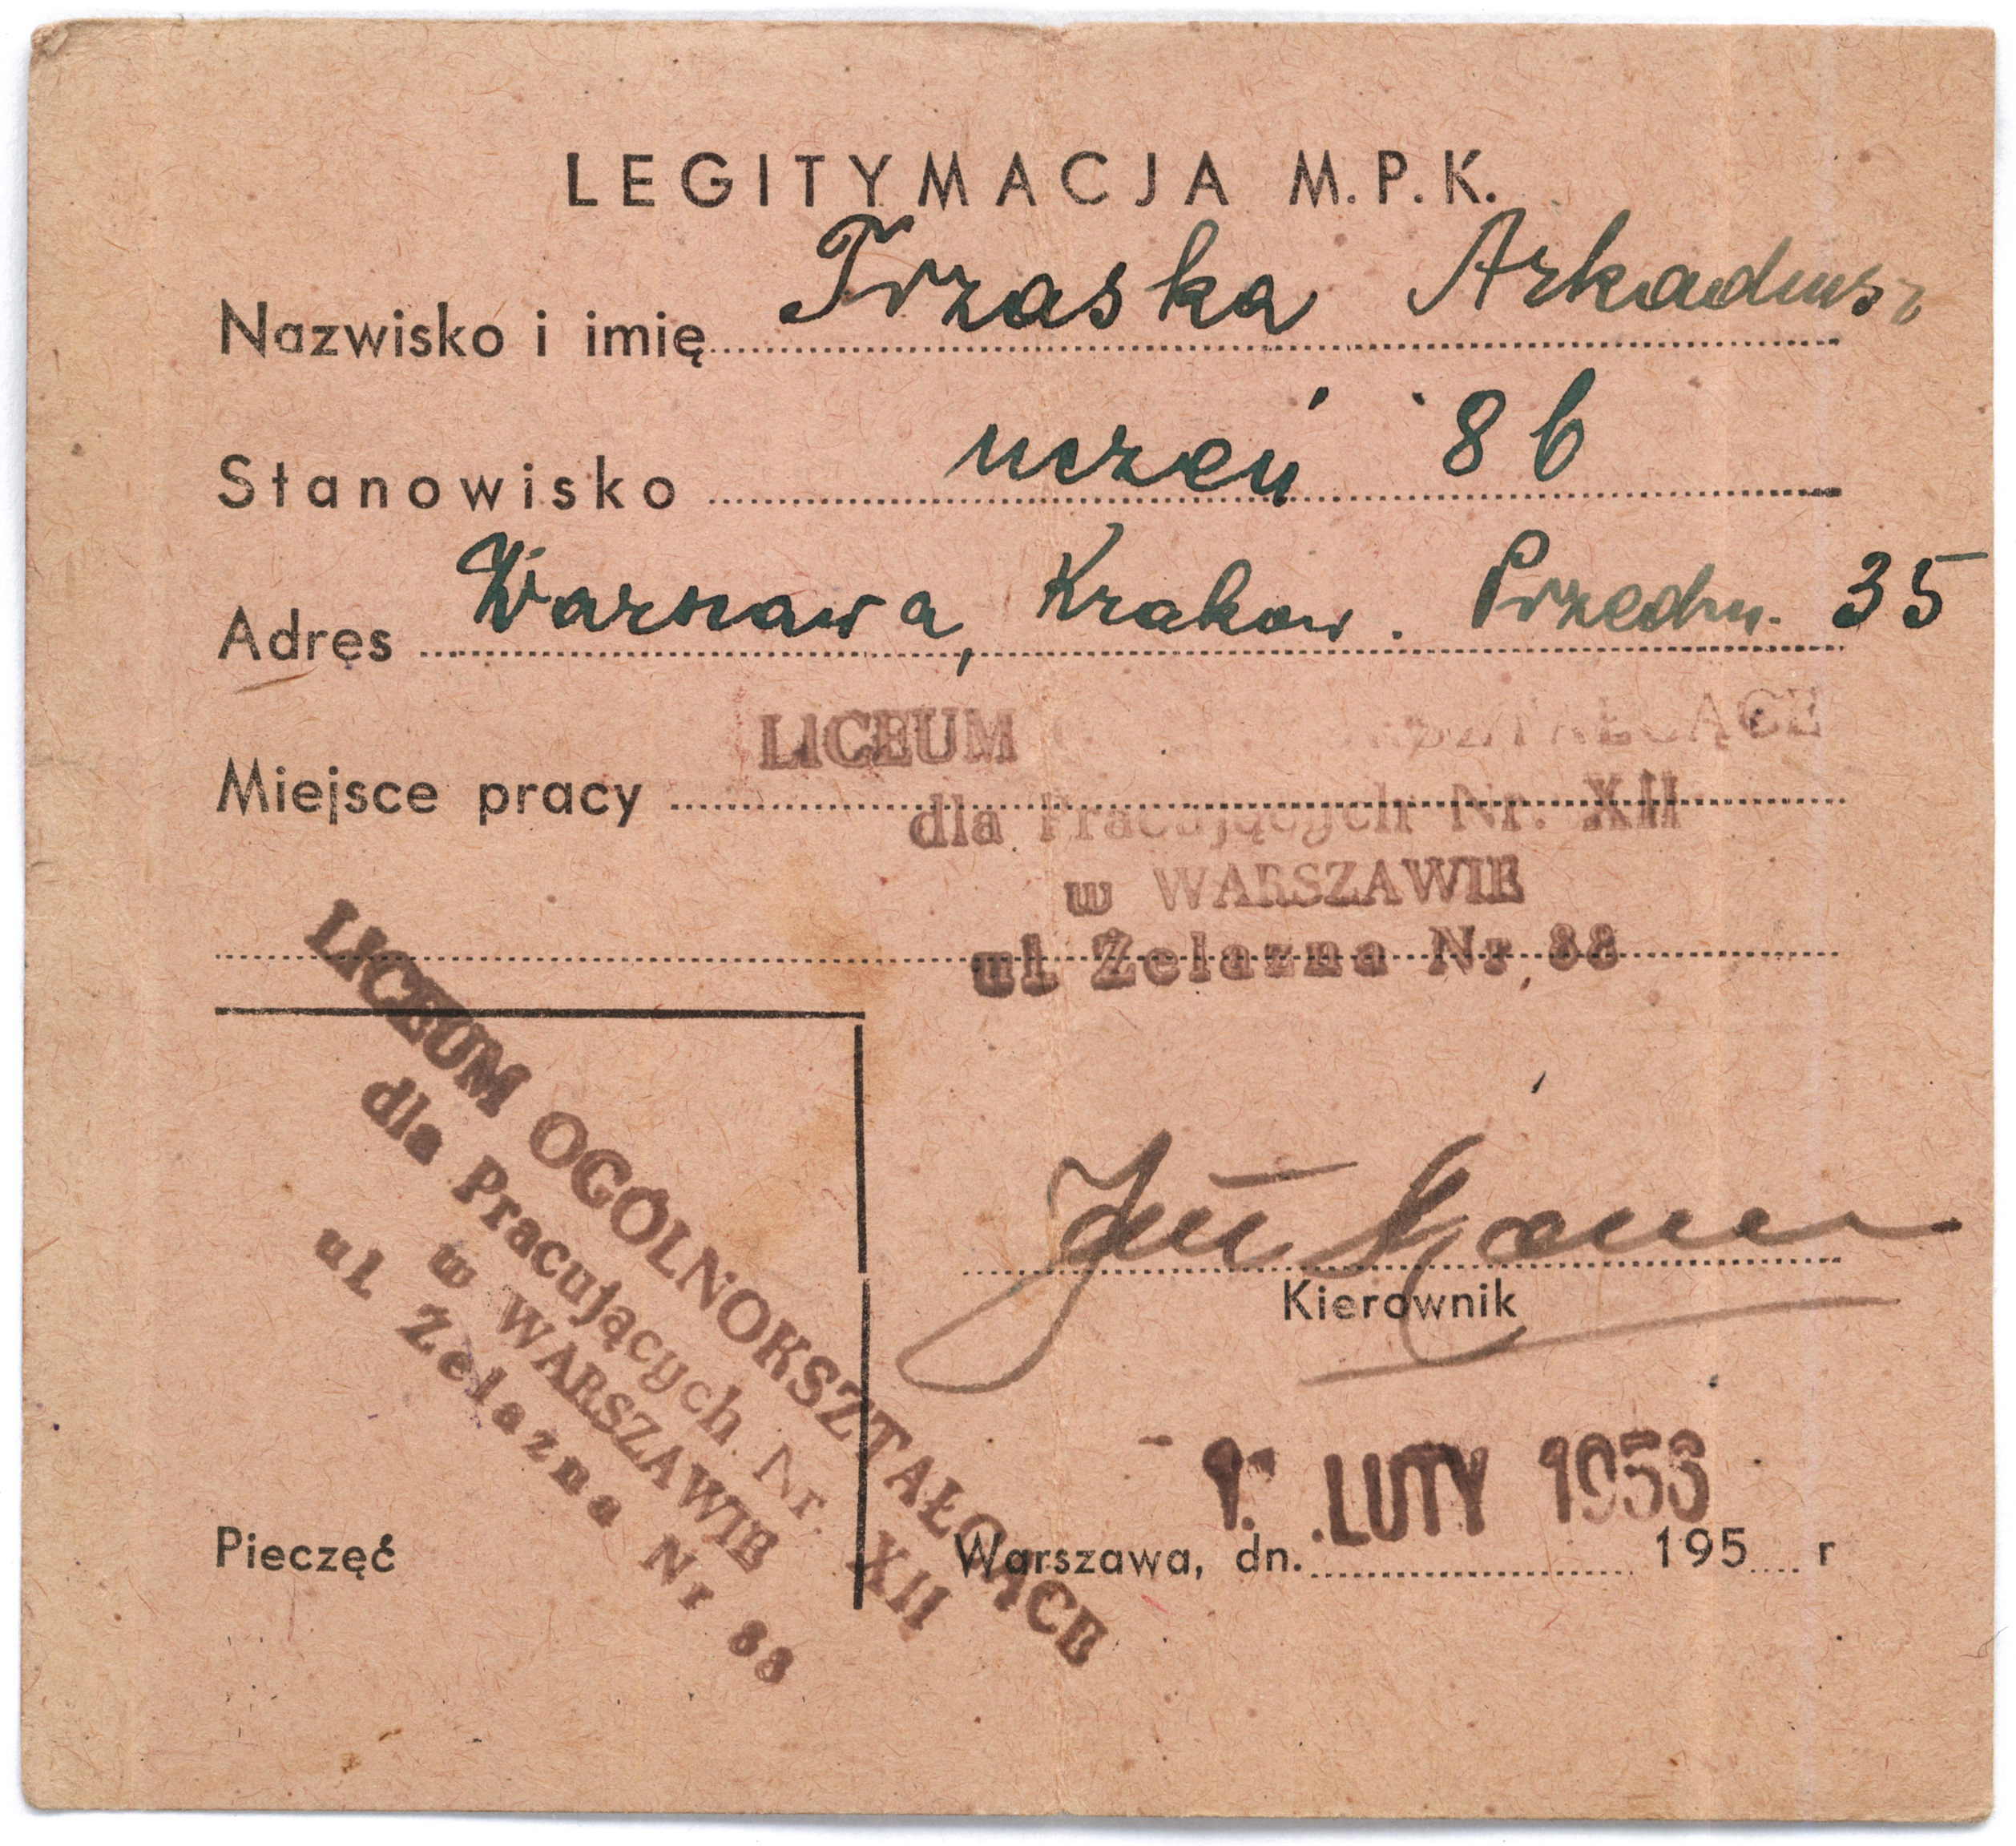 LEGITYMACJA M.P.K.
Nazwisko i imię Trzaska Arkadiusz
Stanowisko uczeń 8b
Adres Warszawa, Krakow. Przedm. 35
Miejsce pracy LICEUM
dla Pracujących Nr. XII
w WARSZAWIE
ul. Żelazna Nr 88
LICEUM OGÓLNOKSZTAŁCĄCE
dla Pracujących Nr. XII
w WARSZAWIE
ul. Żelazna Nr 88
Kierownik
- 1. LUTY 1953
Pieczęć
Warszawa, dn. 195 r